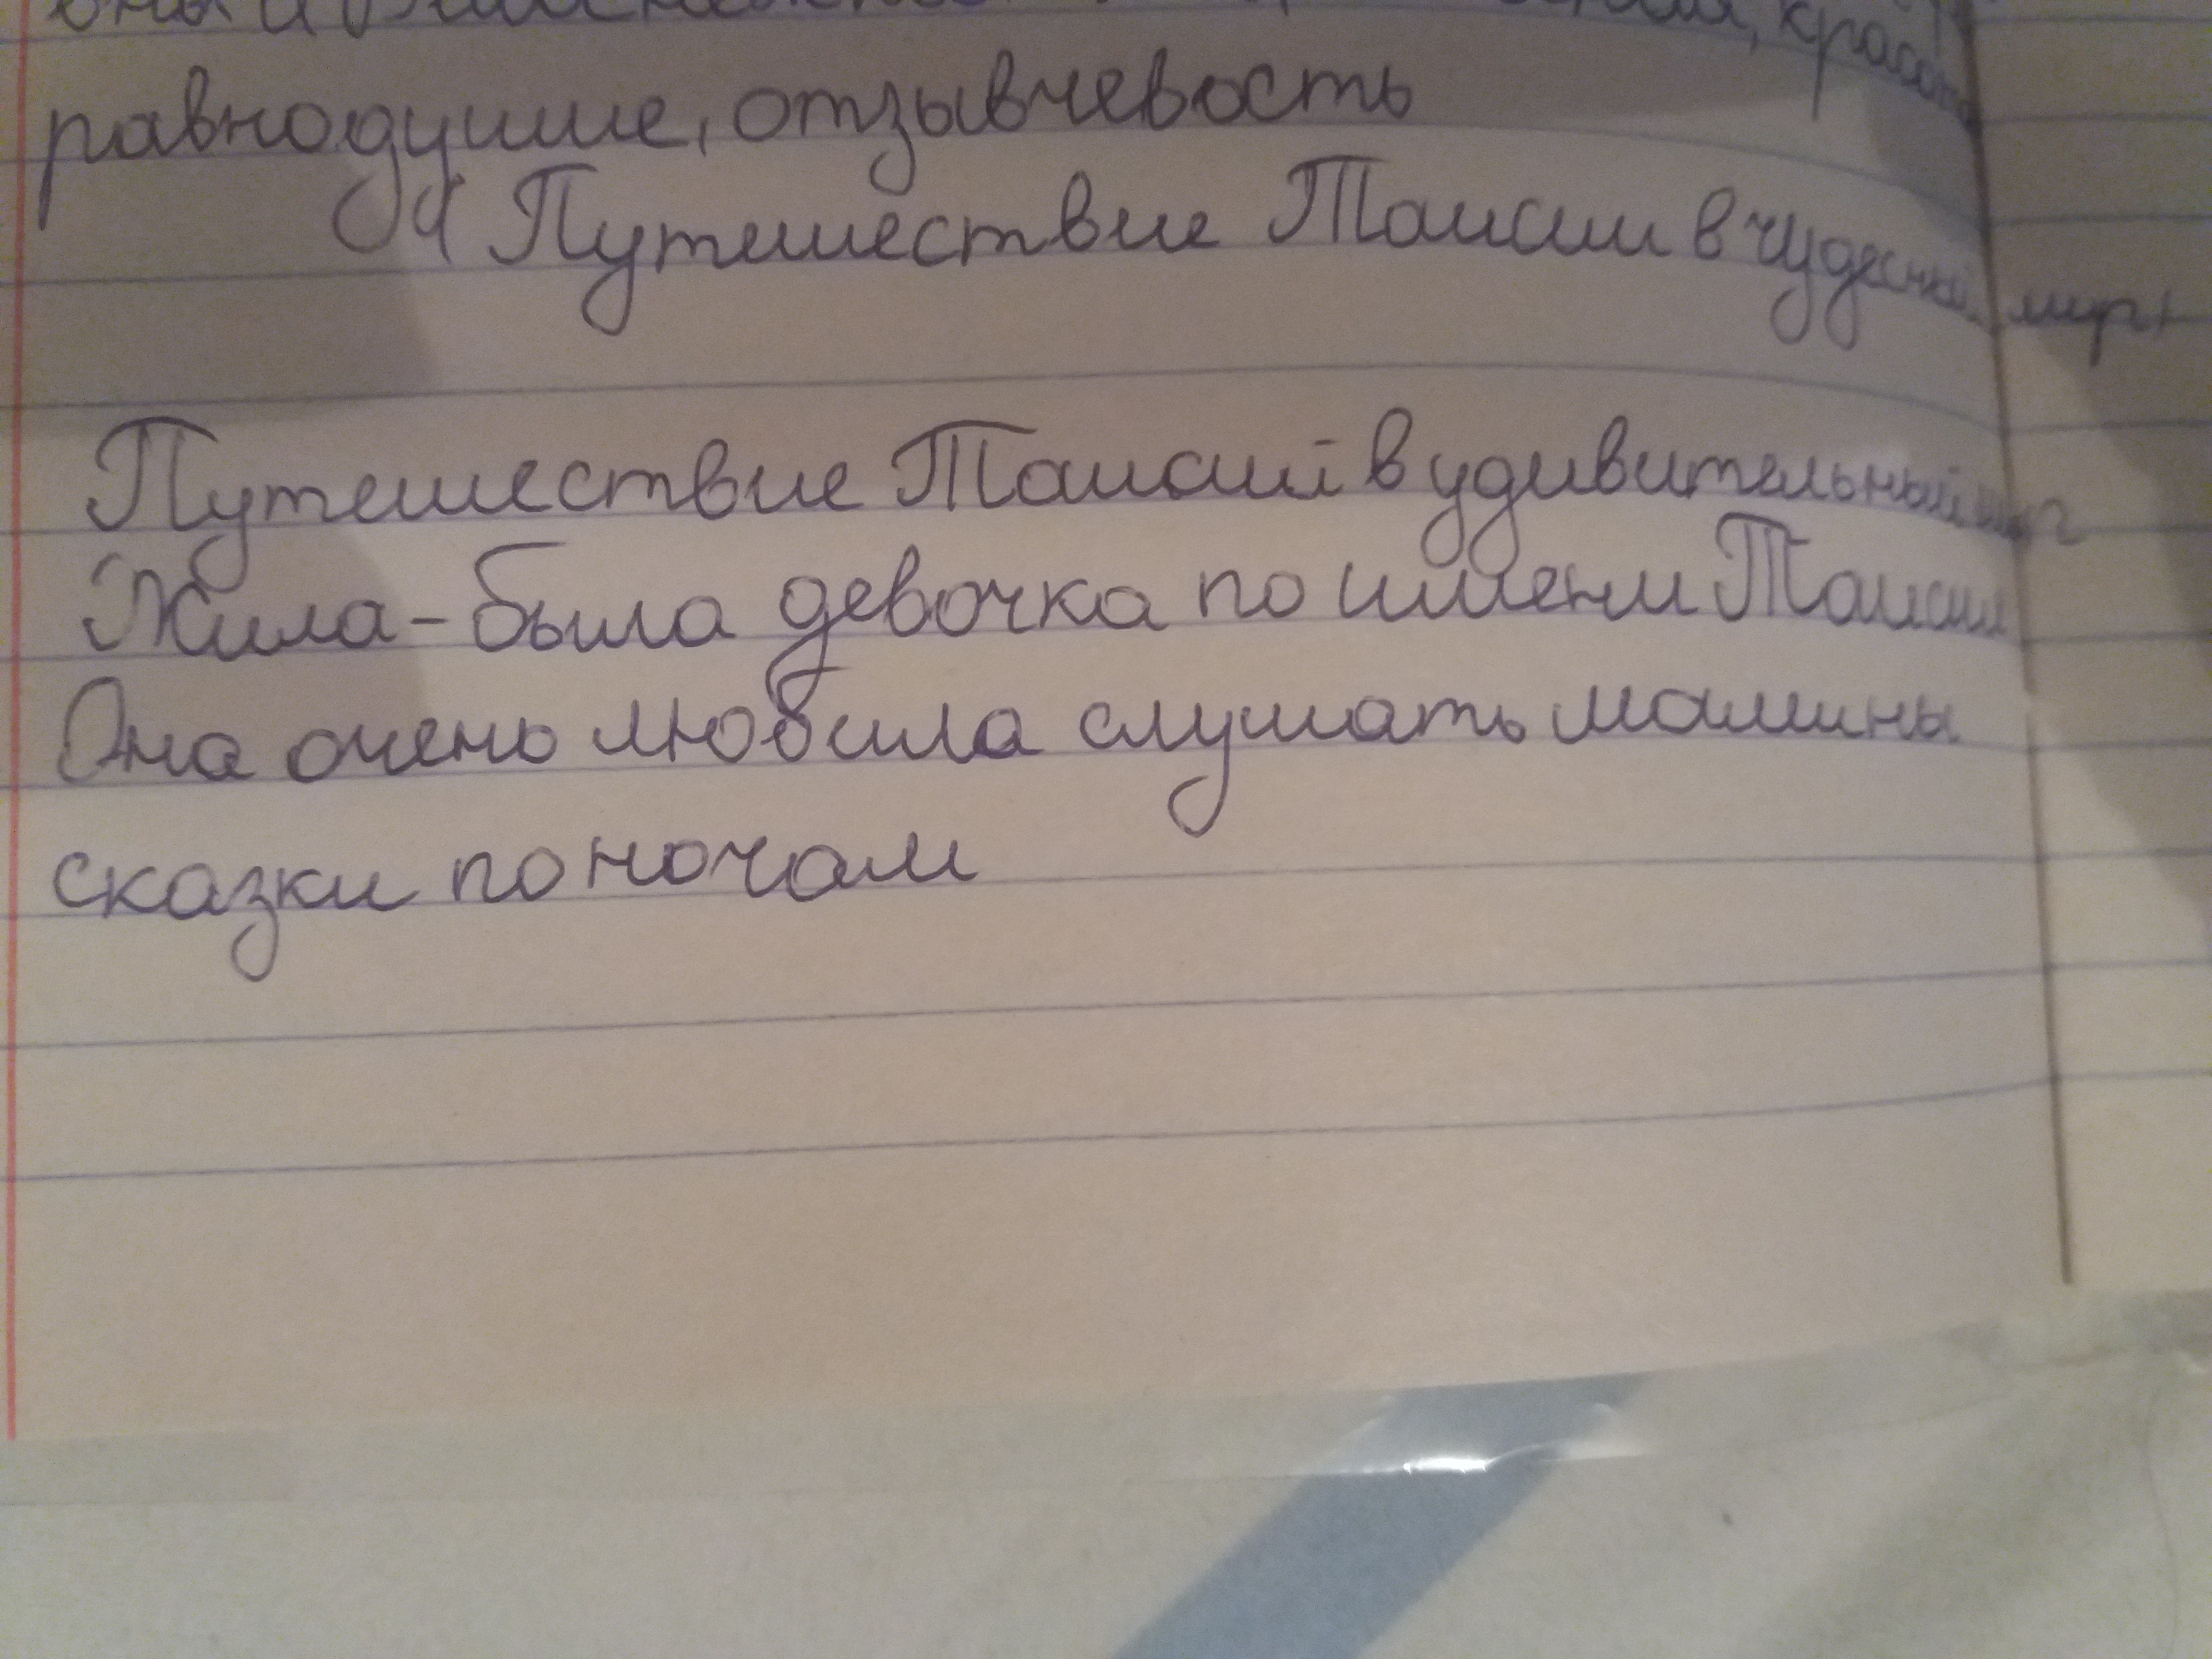 красота
равнодушие, отзывчевость
Путешествие Таисии в чудесный мир
Путешествие Таисий в удивительный мир
Жила-была девочка по имени Таисия
Она очень любила слушать мамины
сказки по ночам